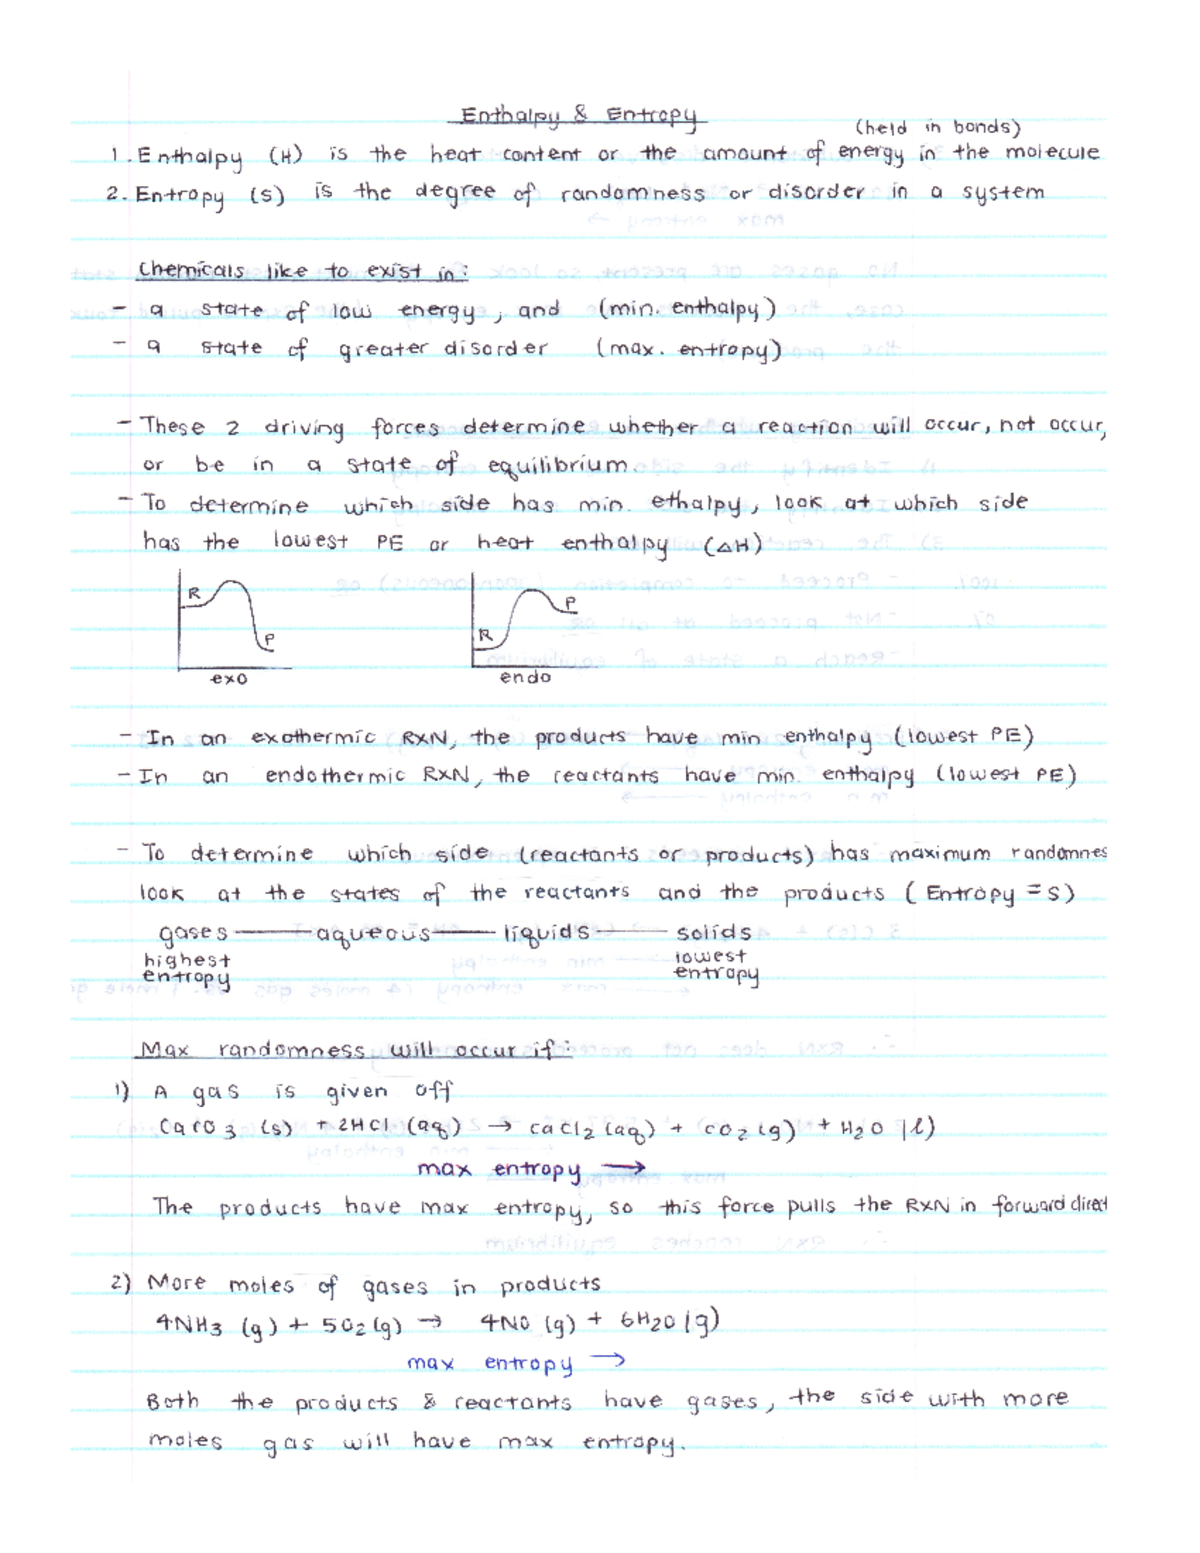 Enthalpy & Entropy
(held in bonds)
1. Enthalpy (H) is the heat content or the amount of energy in the molecule
2. Entropy (S) is the degree of randomness or disorder in a system
Chemicals like to exist in:
- a state of low energy, and (min. enthalpy)
- a state of greater disorder (max. entropy)
- These 2 driving forces determine whether a reaction will occur, not occur,
or be in a state of equilibrium.
- To determine which side has min. ethalpy, look at which side
has the lowest PE or heat enthalpy (△H)
R P R P
exo endo
- In an exothermic RXN, the products have min enthalpy (lowest PE)
- In an endothermic RXN, the reactants have min. enthalpy (lowest PE)
- To determine which side (reactants or products) has maximum randomnes
look at the states of the reactants and the products (Entropy = S)
gases — aqueous — liquids — solids
highest lowest
entropy entropy
Max randomness will occur if:
1) A gas is given off
CaCO3 (s) + 2HCl (aq) → CaCl2 (aq) + CO2 (g) + H2O (l)
max entropy →
The products have max entropy, so this force pulls the RXN in forward direct
2) More moles of gases in products
4NH3 (g) + 5O2 (g) → 4NO (g) + 6H2O (g)
max entropy →
Both the products & reactants have gases, the side with more
moles gas will have max entropy.